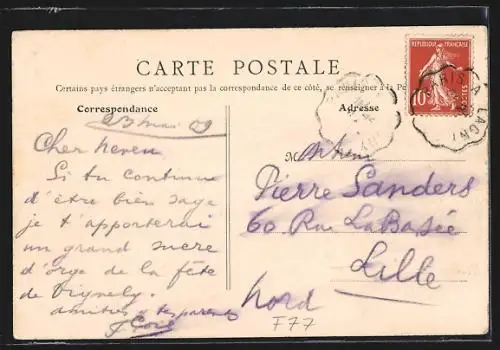 CARTE POSTALE
Certains pays étrangers n'acceptant pas la correspondance de ce côté, se renseigner à la
Correspondance
Adresse
RÉPUBLIQUE FRANÇAISE
10
POSTES
PARIS A LAGNY
23 mai 09
Cher neveu
Si tu continue
d'être bien sage
je t'apporterai
un grand sucre
d'orge de la fête
de Vignely.
amitiés tes parents
M
Pierre Sanders
60 Rue La Basée
Lille
Nord
F77